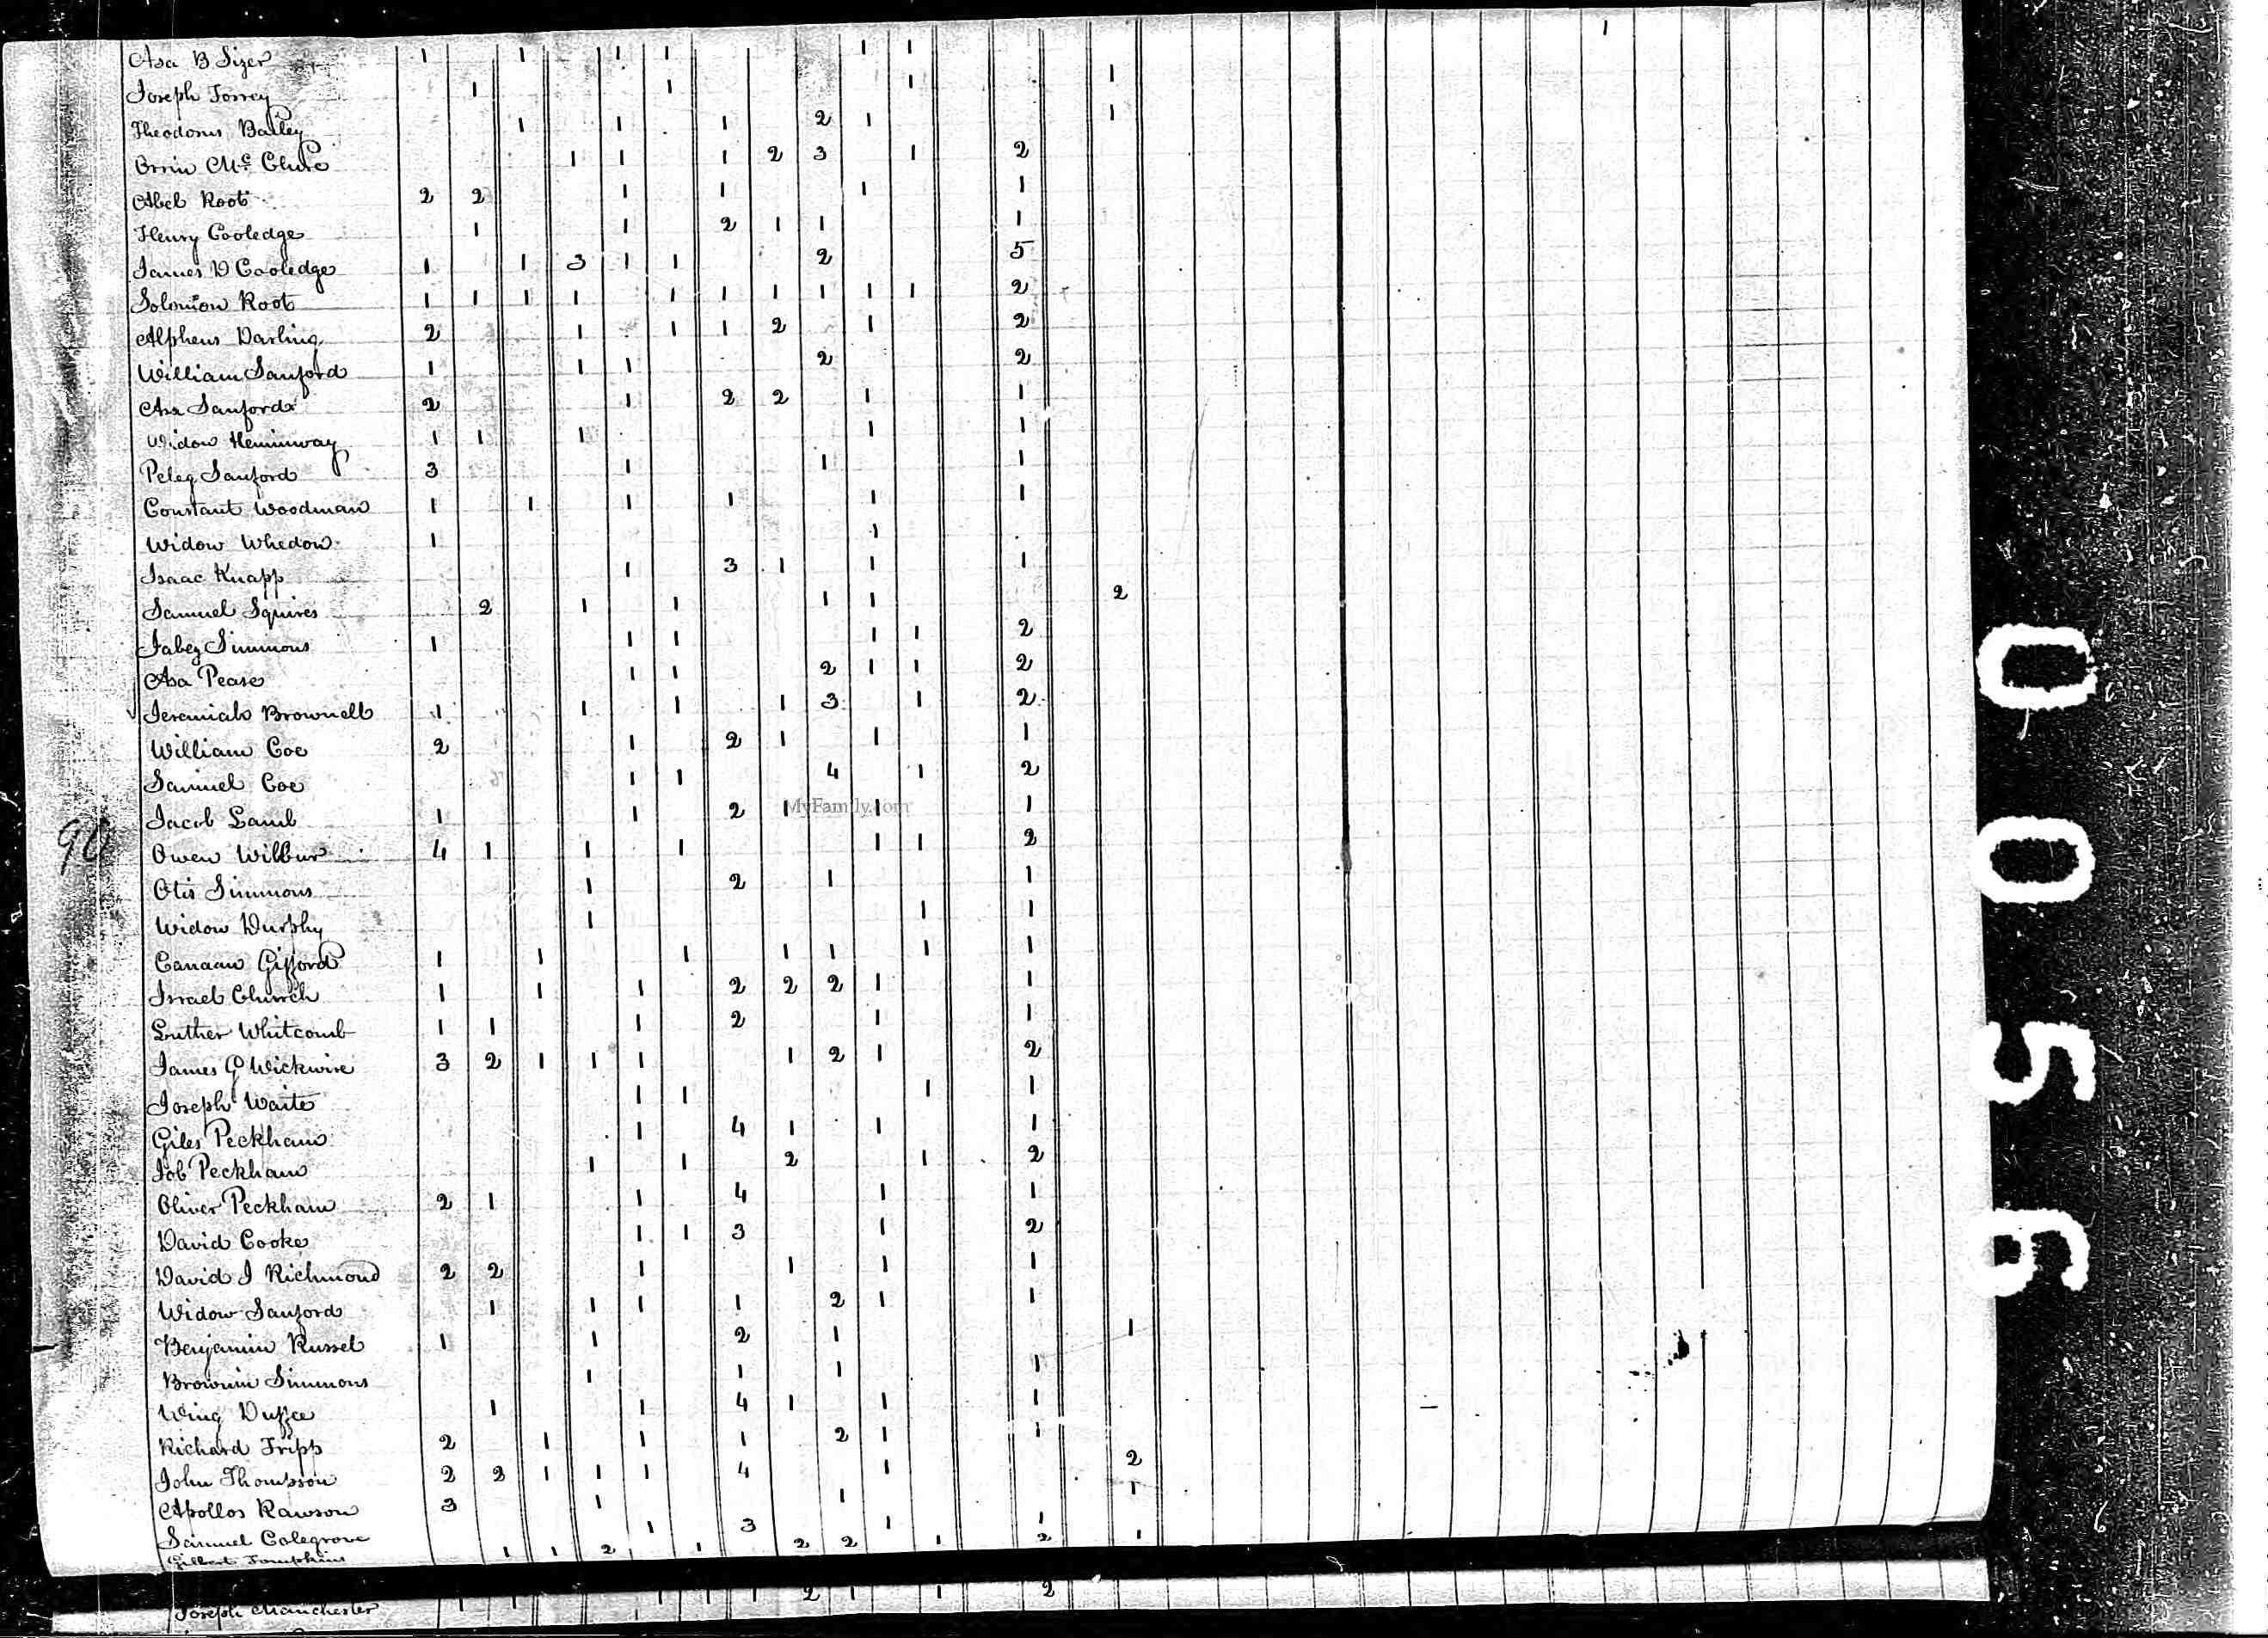 Asa B Sizer 1 1 1 1 1 1 1
Joseph Torrey 1 1 1 1
Theodorus Bailey 1 1 1 2 1 1
Orrin Mc Clure 1 1 1 2 3 1 2
Abel Root 2 2 1 1 1 1
Henry Cooledge 1 1 2 1 1 1
James D Cooledge 1 1 3 1 1 2 5
Solomon Root 1 1 1 1 1 1 1 1 1 1 2
Alpheus Darling 2 1 1 1 2 1 2
William Sanford 1 1 1 2 2
Asa Sanford 2 1 2 2 1 1
Widow Heminway 1 1 1 1 1
Peleg Sanford 3 1 1 1
Constant Woodman 1 1 1 1 1 1
Widow Whedon 1 1
Isaac Knapp 1 3 1 1 1
Samuel Squires 2 1 1 1 1 2
Jabez Simmons 1 1 1 1 1 2
Asa Pease 1 1 2 1 1 2
Jeremiah Brownell 1 1 1 1 3 1 2
William Coe 2 1 2 1 1 1
Samuel Coe 1 1 4 1 2
Jacob Lamb 1 1 2 1 1 1
MyFamily.com
90
Owen Wilbur 4 1 1 1 1 1 2
Otis Simmons 1 2 1 1
Widow Durphy 1 1 1
Canaan Gifford 1 1 1 1 1 1 1
Israel Church 1 1 1 2 2 2 1 1
Luther Whitcomb 1 1 1 2 1 1
James G Wickwire 3 2 1 1 1 1 2 1 2
Joseph Waite 1 1 1 1
Giles Peckham 1 4 1 1 1
Job Peckham 1 1 2 1 2
Oliver Peckham 2 1 1 4 1 1
David Cooke 1 1 3 1 2
David J Richmond 2 2 1 1 1 1
Widow Sanford 1 1 1 1 2 1 1
Benjamin Russel 1 1 2 1 1
Simmons 1 1 1 1
Wing Duffee 1 1 4 1 1 1
Richard Tripp 2 1 1 1 2 1 1
John Thompson 2 2 1 1 1 4 1 2
Apollos Rawson 3 1 1 1
Samuel Colegrove 1 3 1 1
Gilbert Tompkins 1 1 2 1 2 2 1 2 1
Joseph Manchester 1 1 1 1 1 1 2 1 1 2
0056